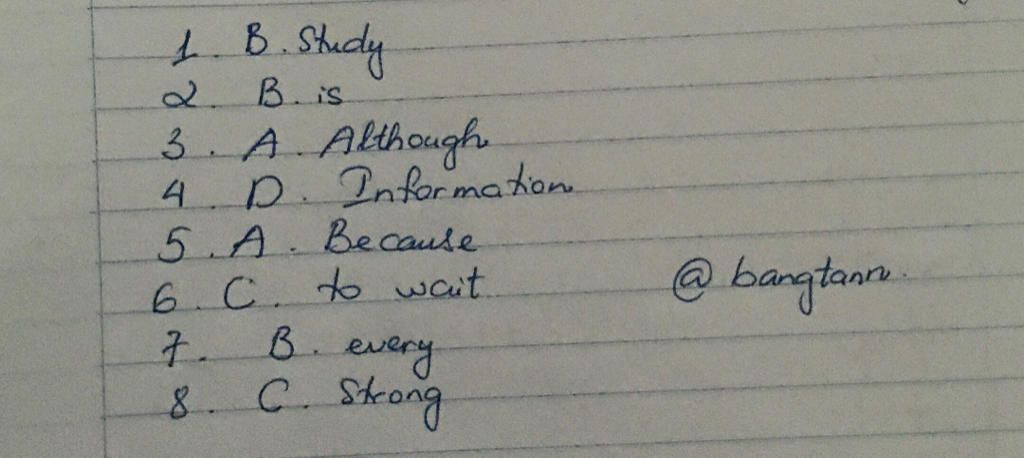 1. B. Study
2. B. is
3. A. Although
4. D. Information
5. A. Because
6. C. to wait
@ bangtann.
7. B. every
8. C. Strong